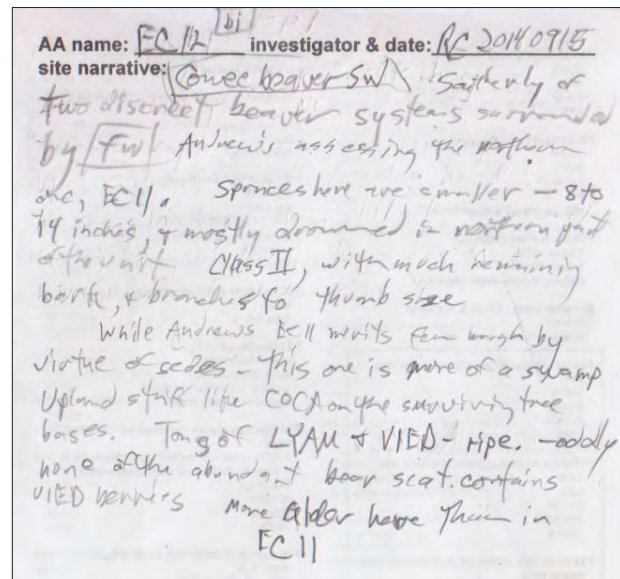 bj
AA name: EC 12 investigator & date: RC 20140915
site narrative: Cowee beaver SW Southerly of
two discreet beaver systems surrounded
by fw Andrew's assessing the northern
one, EC11. Spruces here are smaller – 8 to
14 inches, & mostly drowned in northern part
of the unit Class II, with much remaining
bark, & branches to thumb size
While Andrew's EC11 merits fen marsh by
virtue of sedges – this one is more of a swamp
Upland stuff like COCA on the surviving tree
bases. Tons of LYAM & VIED – ripe. – oddly
none of the abundant bear scat contains
VIED berries more alder here than in
EC11